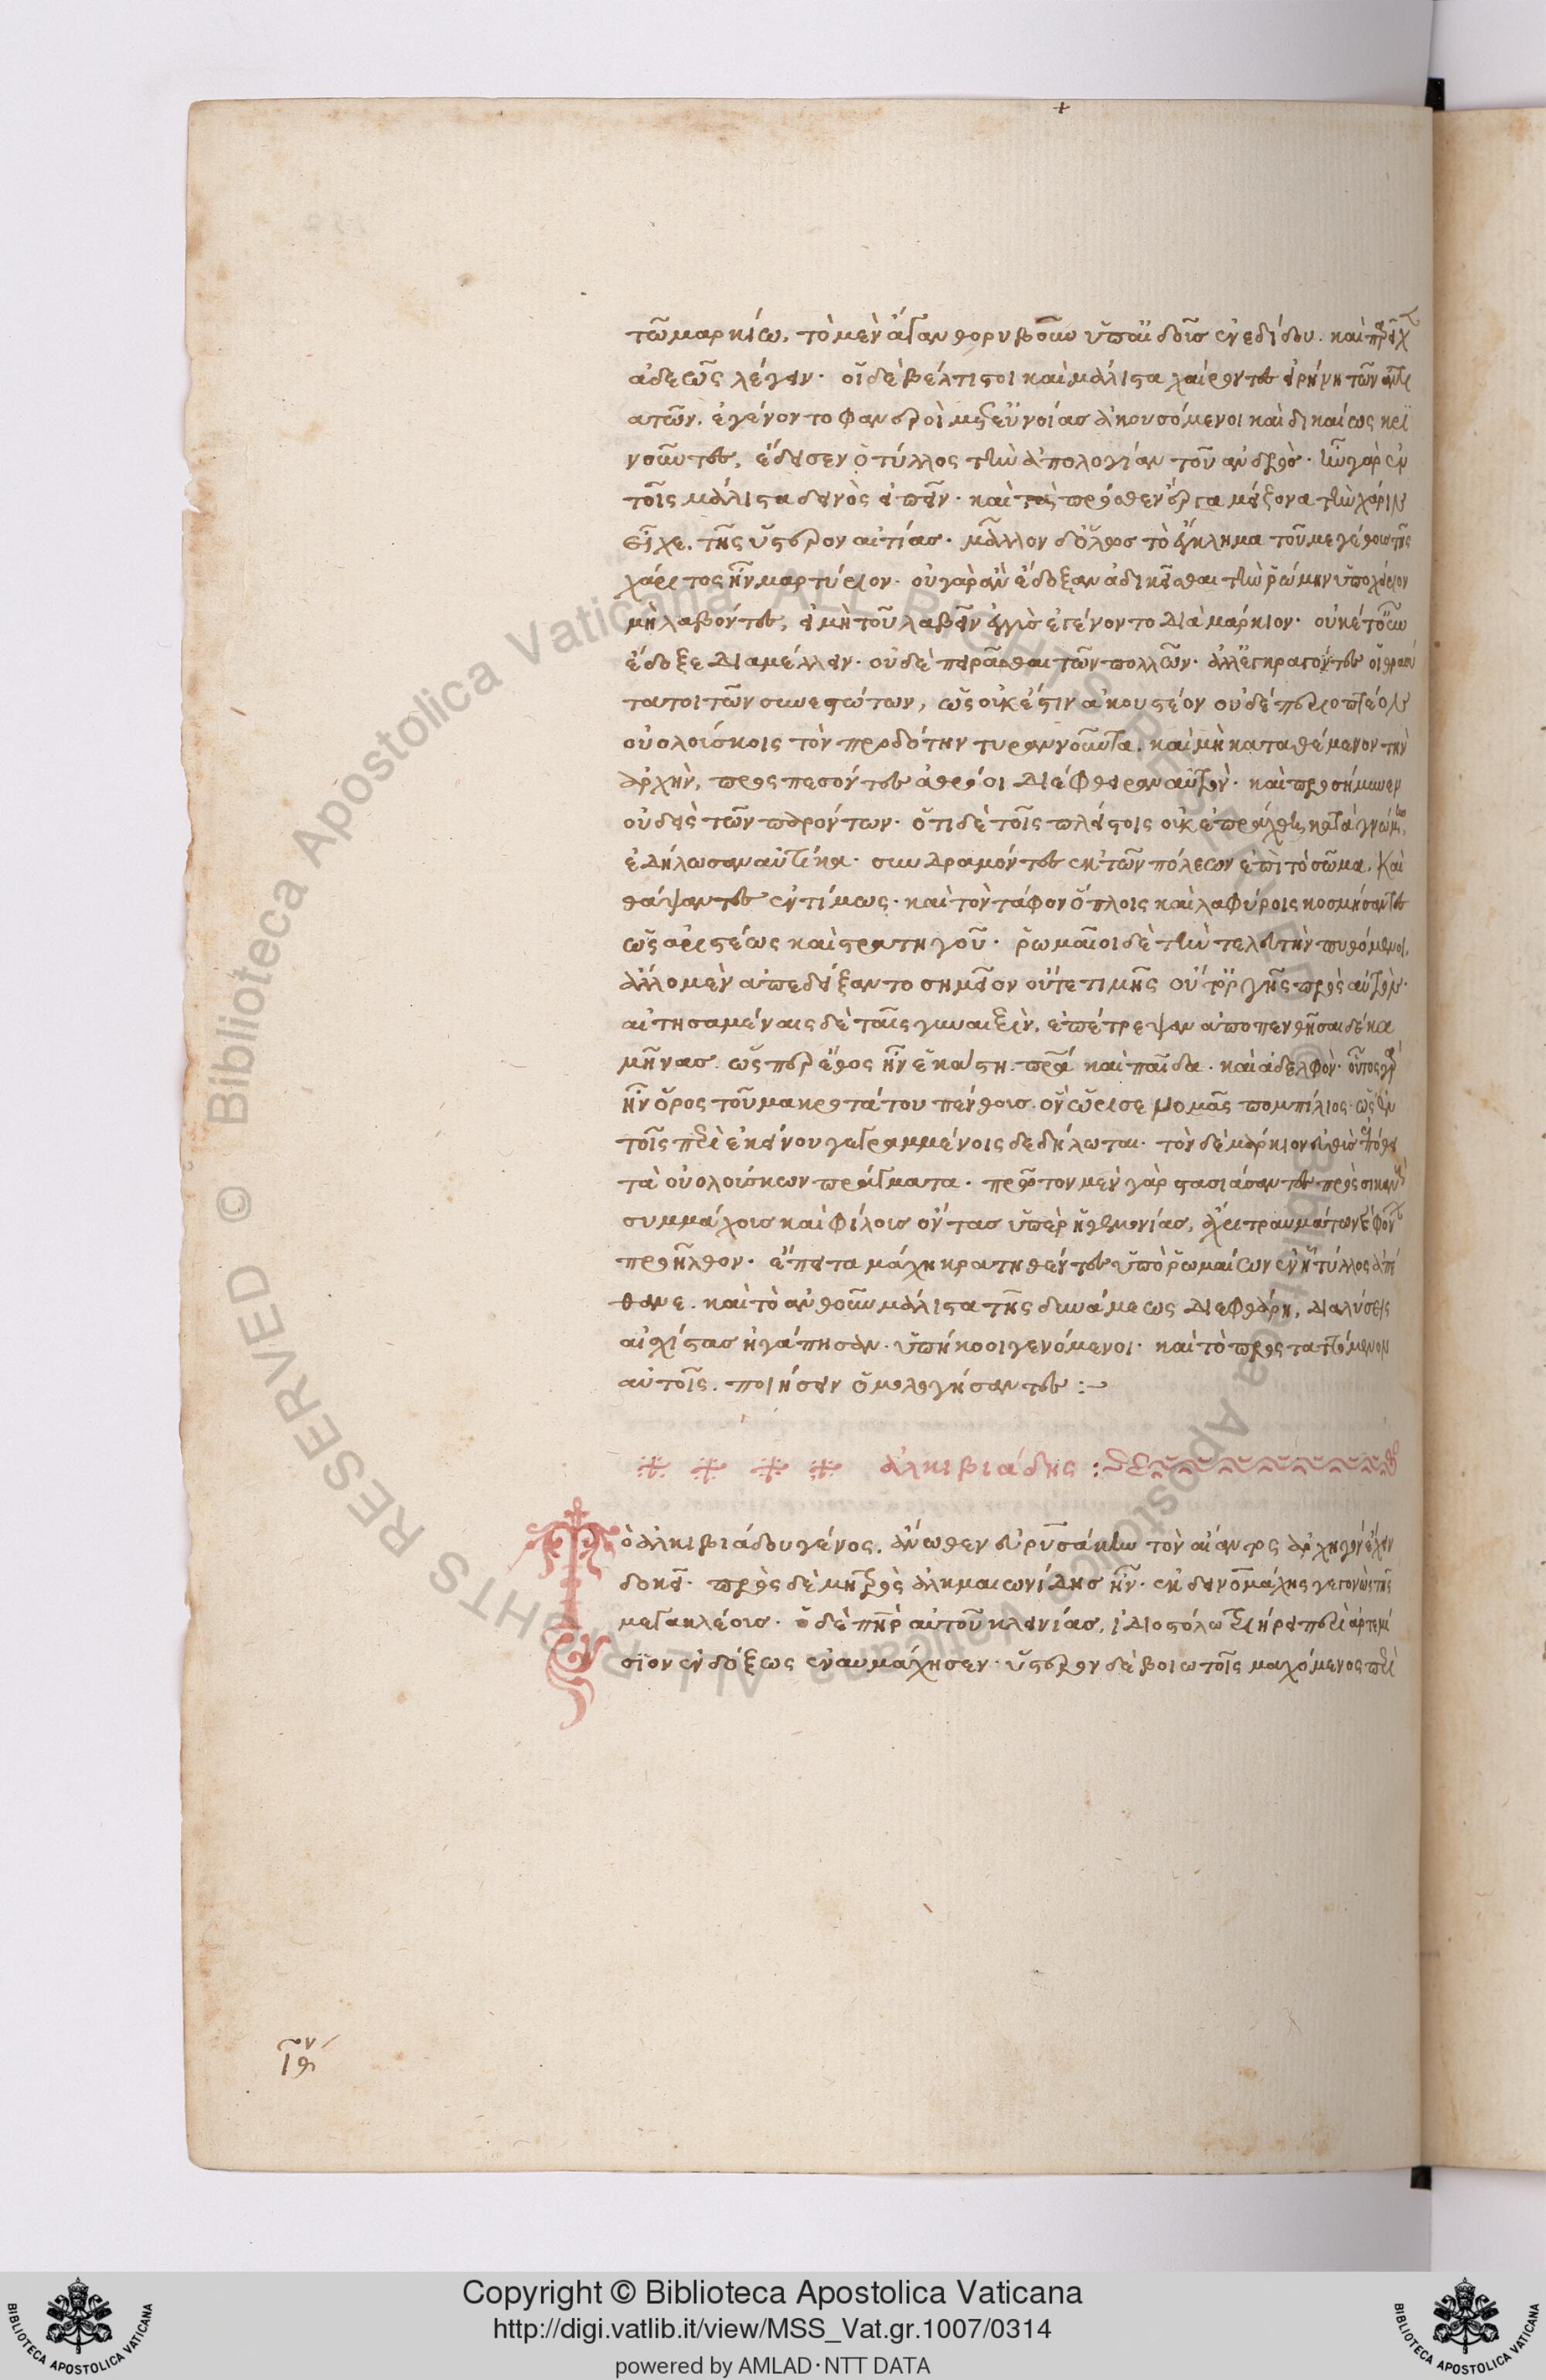 τῶ μαρκίω, τὸ μὲν ἄγαν θορυβοῦν ὑπ' αἰδοῦς ἐνεδίδου. καὶ παρεῖχ
ἀδεῶς λέγειν. οἱ δὲ βέλτιστοι καὶ μάλιστα χαίροντες εἰρήνη τῶν ἀντι
ατῶν, ἐγένοντο φανεροὶ μετ' εὐνοίας ἀκουσόμενοι καὶ δικαίως κρι
νοῦντες, ἔδεισεν ὁ τύλλος τὴν ἀπολογίαν τοῦ ἀνδρός. ἦν γὰρ ἐν
τοῖς μάλιστα δεινὸς εἰπεῖν. καὶ τὰ πρόσθεν ἔργα μείζονα τὴν χάριν
εἶχε. τῆς ὕστερον αἰτίας. μᾶλλον δ' ὅλως τὸ ἔγκλημα τοῦ μεγέθους τῆς
χάριτος ἦν μαρτύριον. οὐ γὰρ ἂν ἔδοξαν ἀδικεῖσθαι τὴν ῥώμην ὑποχείριον
μὴ λαβόντες, εἰ μὴ τοῦ λαβεῖν ἐγγὺς ἐγένοντο διὰ μάρκιον. οὐκέτ' οὖν
ἔδοξε διαμέλλειν. οὐδὲ πειρᾶσθαι τῶν πολλῶν. ἀλλ' ἐγκραγόντες οἱ θρασύ
τατοι τῶν συνεστώτων, ὡς οὐκ ἔστιν ἀκουστέον οὐδὲ περιοπτέον
οὐολούσκοις τὸν προδότην τυραννοῦντα. καὶ μὴ κατατιθέμενον τὴν
ἀρχὴν, προσπεσόντες ἀθρόοι διέφθειραν αὐτὸν. καὶ προσήμυνεν
οὐδεὶς τῶν παρόντων. ὅτι δὲ τοῖς πλείστοις οὐκ ἐπράχθη κατὰ γνώμην,
ἐδήλωσαν αὐτίκα. συνδραμόντες ἐκ τῶν πόλεων ἐπὶ τὸ σῶμα. καὶ
θάψαντες ἐντίμως. καὶ τὸν τάφον ὅπλοις καὶ λαφύροις κοσμήσαντες
ὡς ἀριστέως καὶ στρατηγοῦ. ῥωμαῖοι δὲ τὴν τελευτὴν πυθόμενοι,
ἄλλο μὲν ἀπεδείξαντο σημεῖον οὔτε τιμῆς οὔτ' ὀργῆς πρὸς αὐτὸν.
αἰτησαμέναις δὲ ταῖς γυναιξὶν, ἐπέτρεψαν ἀποπενθῆσαι δέκα
μῆνας. ὥσπερ ἔθος ἦν ἑκάστη πρα καὶ παῖδα. καὶ ἀδελφὸν. οὗτος γὰρ
ἦν ὅρος τοῦ μακροτάτου πένθους. ὃν ὥρισε νομᾶς πομπίλιος. ὡς ἐν
τοῖς περὶ ἐκείνου γεγραμμένοις δεδήλωται. τὸν δὲ μάρκιον εὐθὺς ἐπόθει
τὰ οὐολούσκων πράγματα. πρῶτον μὲν γὰρ στασιάσαντες πρὸς αἰκανοὺς
συμμάχους καὶ φίλους ὄντας ὑπὲρ ἡγεμονίας, ἄχρι τραυμάτων καὶ φόνων
προῆλθον. ἔπειτα μάχη κρατηθέντες ὑπὸ ῥωμαίων ἐν ἧ τύλλος ἀπέ
θανε. καὶ τὸ ἀνθοῦν μάλιστα τῆς δυνάμεως διεφθάρη, διαλύσεις
αἰσχίστας ἠγάπησαν. ὑπήκοοι γενόμενοι. καὶ τὸ προσταττόμενον
αὐτοῖς. ποιήσειν ὁμολογήσαντες :-
ἀλκιβιάδης :
Τὸ ἀλκιβιάδου γένος, ἄνωθεν εὐρυσάκην τὸν αἴαντος ἀρχηγὸν ἔχειν
δοκεῖ. πρὸς δὲ μητρὸς ἀλκμαιωνίδης ἦν. ἐκ δεινομάχης γεγονὼς τῆς
μεγακλέους. ὁ δὲ πηρ αὐτοῦ κλεινίας, ἰδιοστόλω τριήρει περὶ ἀρτεμί
σιον ἐνδόξως ἐναυμάχησεν. ὕστερον δὲ βοιωτοῖς μαχόμενος περὶ
Copyright © Biblioteca Apostolica Vaticana
http://digi.vatlib.it/view/MSS_Vat.gr.1007/0314
powered by AMLAD·NTT DATA
BIBLIOTECA APOSTOLICA VATICANA
BIBLIOTECA APOSTOLICA VATICANA
© Biblioteca Apostolica Vaticana ALL RIGHTS RESERVED
© Biblioteca Apostolica Vaticana ALL RIGHTS RESERVED